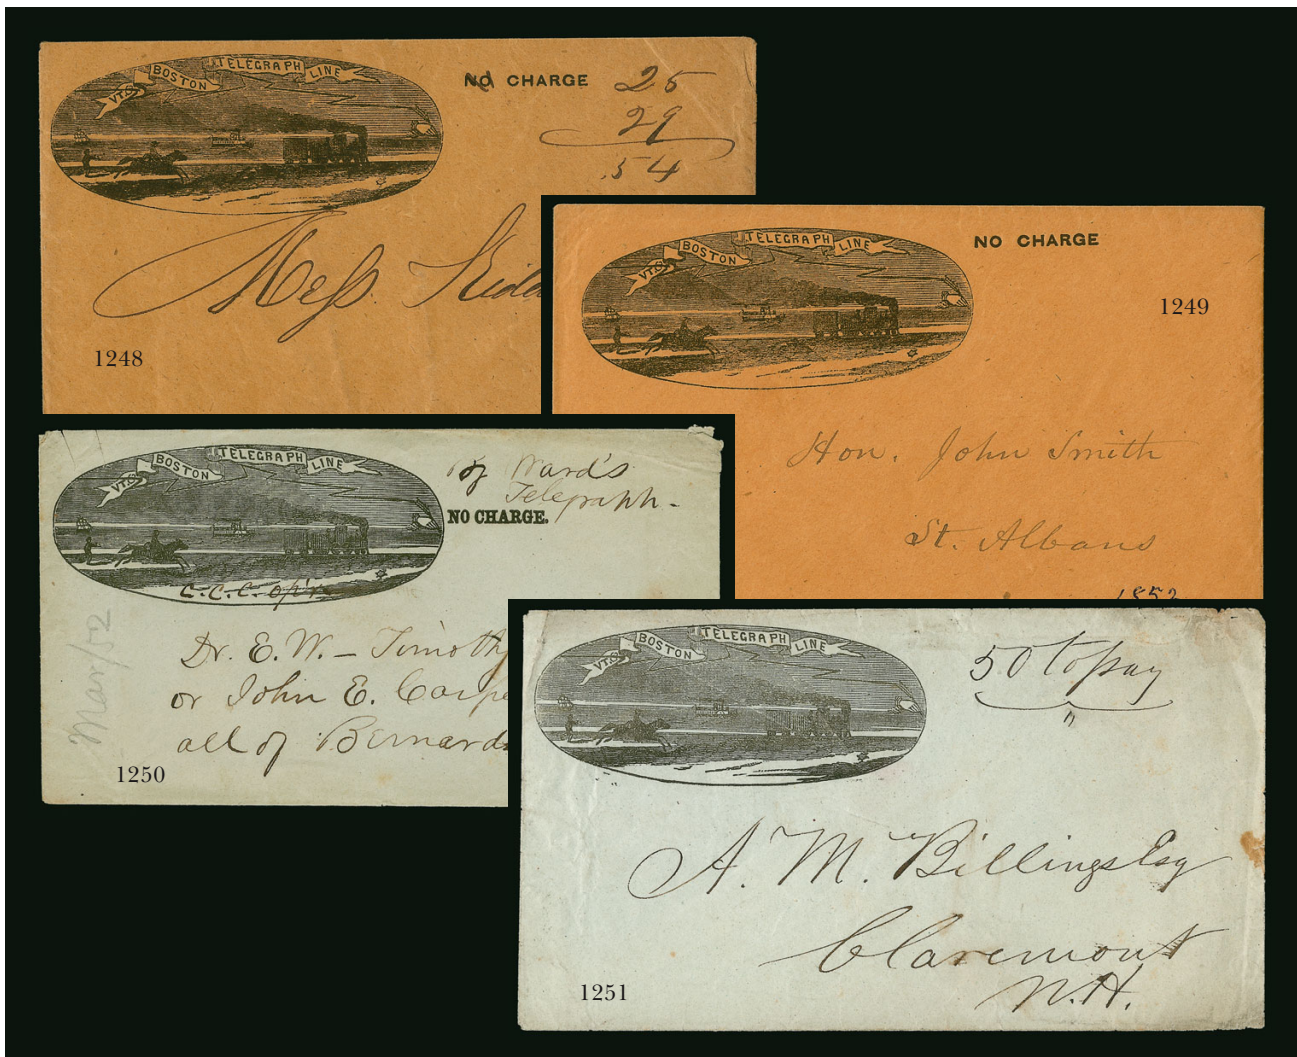 VT. & BOSTON TELEGRAPH LINE
NO CHARGE 25
29
.54
Mess.
1248
VT. & BOSTON TELEGRAPH LINE
NO CHARGE
1249
Hon. John Smith
St. Albans
1852
VT. & BOSTON TELEGRAPH LINE
By Ward's
Telegraph.
NO CHARGE.
C.C.C. op'r
Dr. E. W. – Timothy
or John E. Carpe
all of Bernards
Mar/52
1250
VT. & BOSTON TELEGRAPH LINE
50 to pay
"
A. M. Billings Esq
Claremont
N.H.
1251